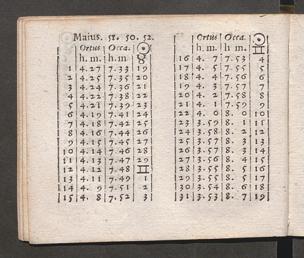 Maius. 51. 50. 52.
Ortus Occa. ☉
h. m. h. m. ♉
1 4. 27 7. 33 19
2 4. 25 7. 35 20
3 4. 24 7. 36 21
4 4. 22 7. 38 22
5 4. 21 7. 39 23
6 4. 19 7. 41 24
7 4. 18 7. 42 25
8 4. 16 7. 44 26
9 4. 15 7. 45 27
10 4. 14 7. 46 28
11 4. 13 7. 47 29
12 4. 12 7. 48 ♊
13 4. 11 7. 49 1
14 4. 9 7. 51 2
15 4. 8 7. 52 3
Ortus Occa. ☉
h. m. h. m. ♊
16 4. 7 7. 53 4
17 4. 5 7. 55 5
18 4. 4 7. 56 6
19 4. 3 7. 57 7
20 4. 2 7. 58 8
21 4. 1 7. 59 9
22 4. 0 8. 0 10
23 3. 59 8. 1 11
24 3. 58 8. 2 12
25 3. 57 8. 3 13
26 3. 57 8. 3 14
27 3. 56 8. 4 15
28 3. 55 8. 5 16
29 3. 55 8. 5 17
30 3. 54 8. 6 18
31 3. 53 8. 7 19